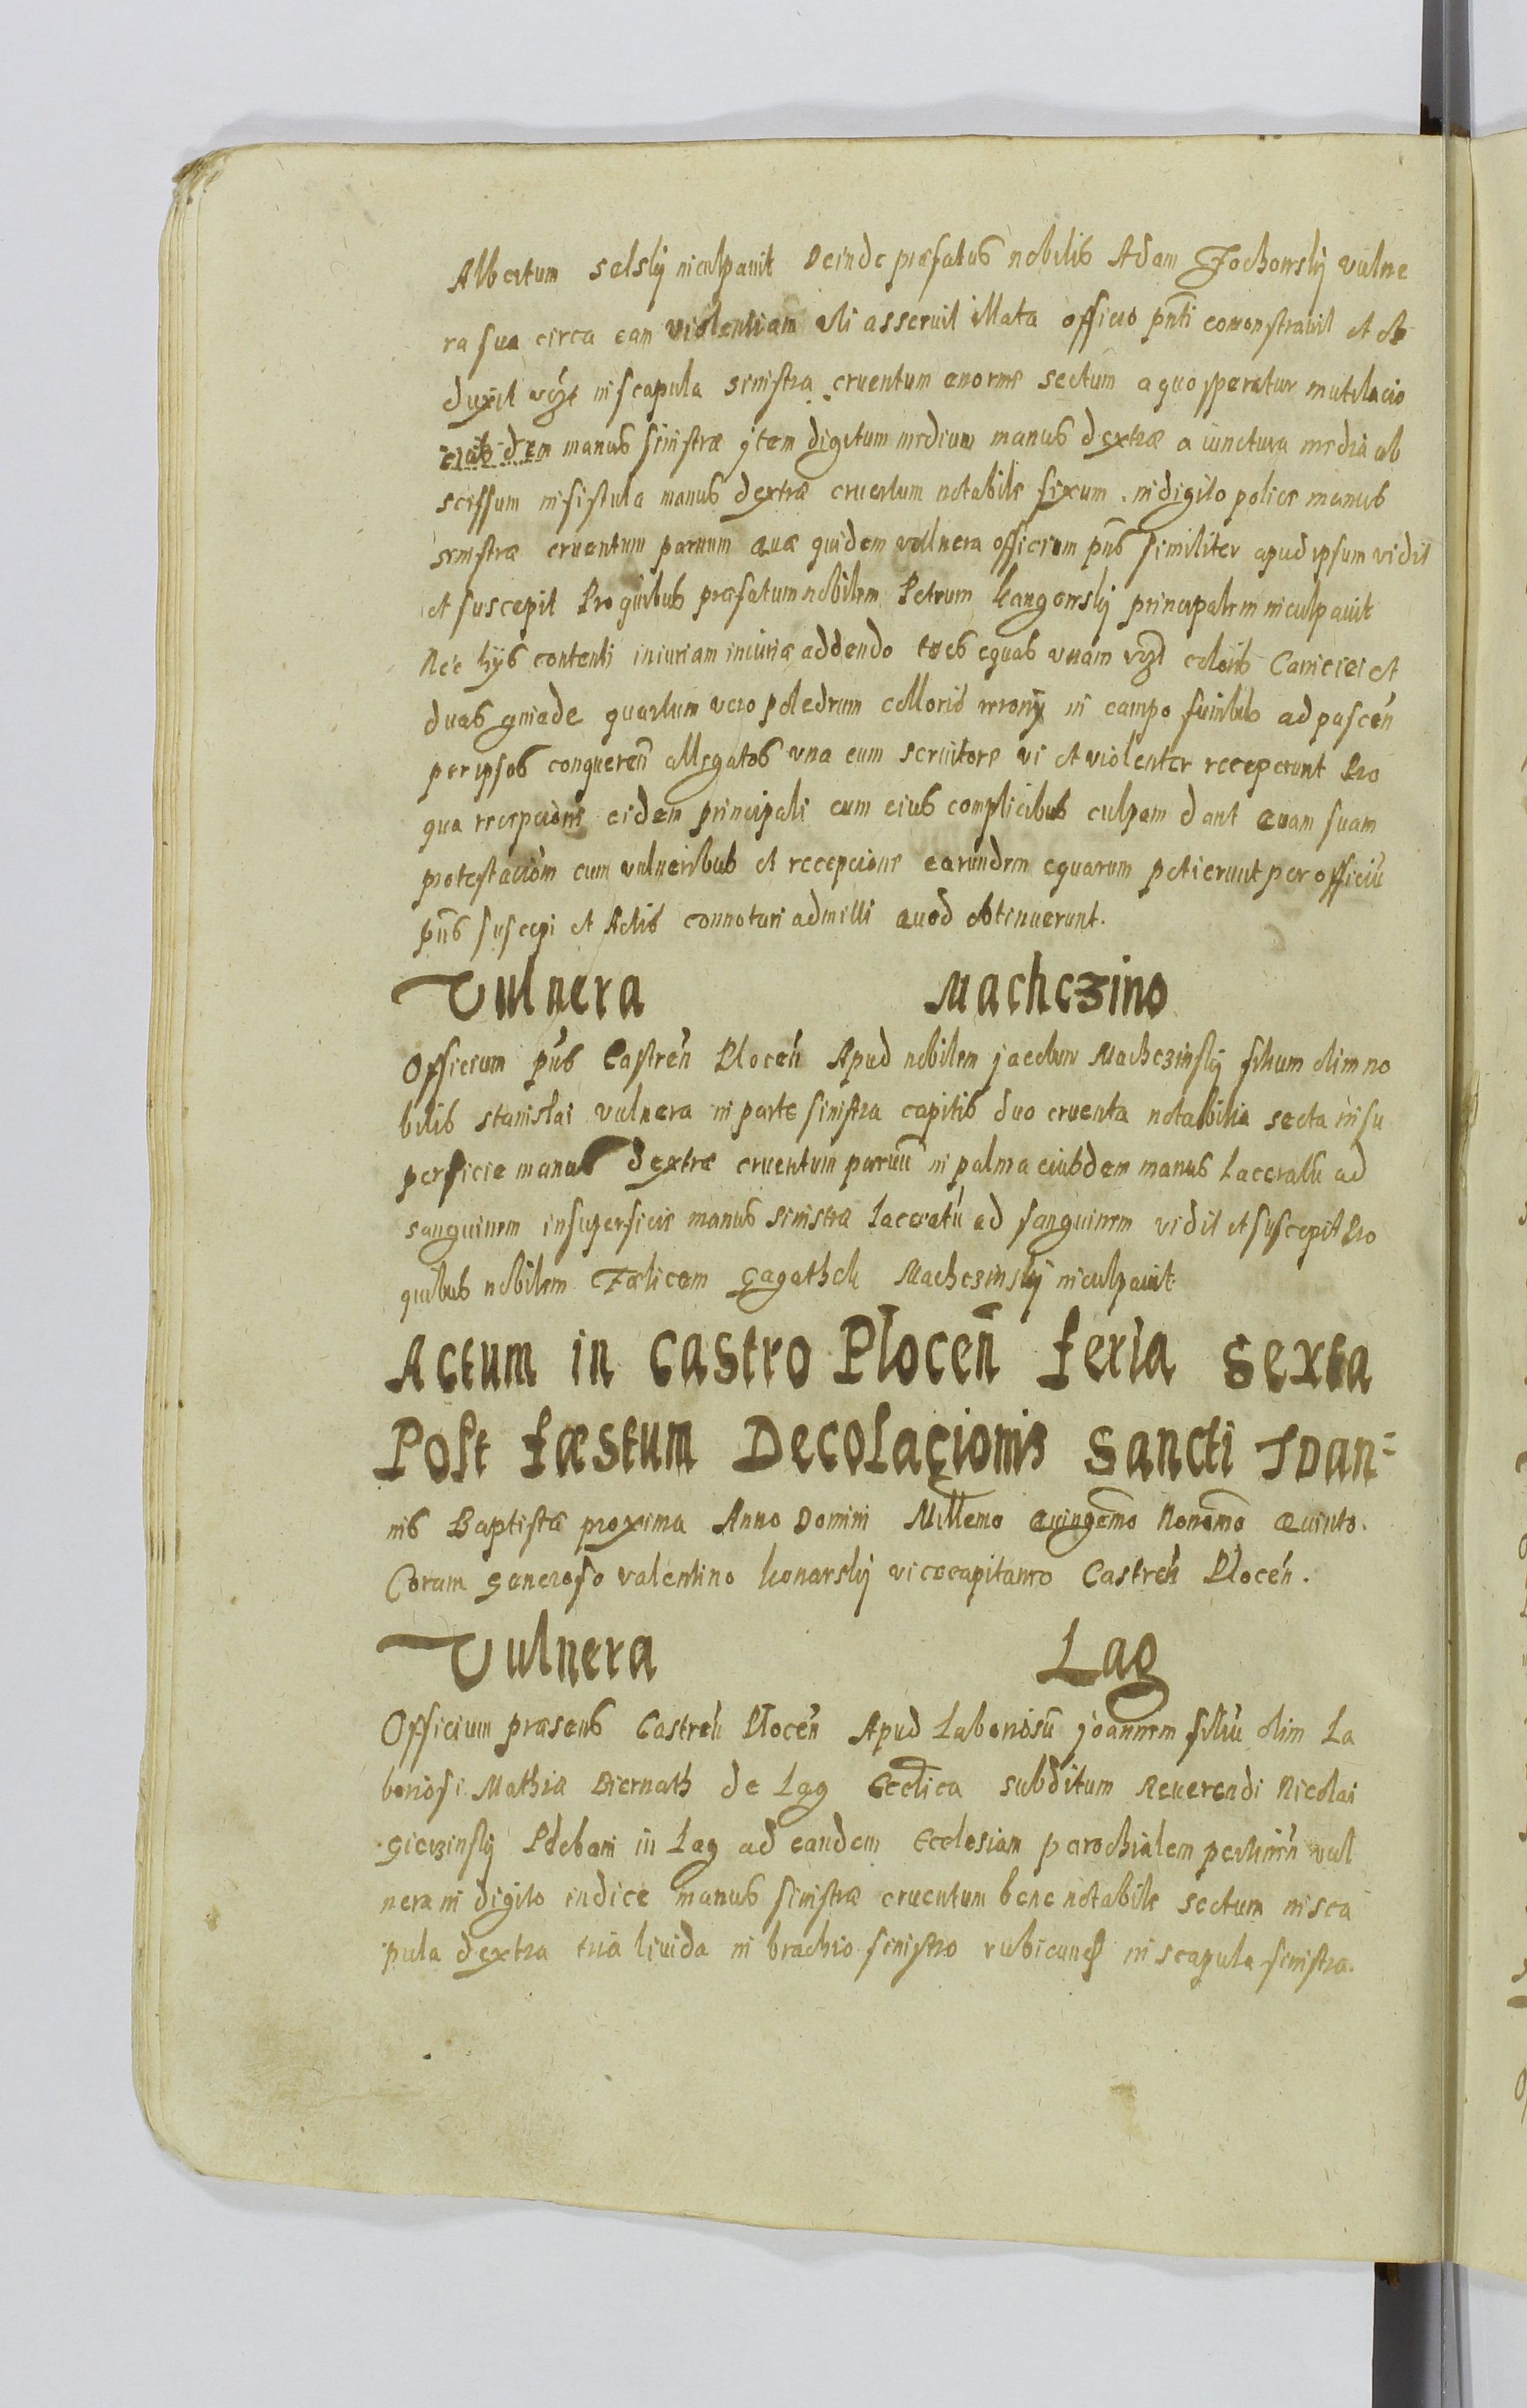 Albertum Selsky inculpavit Deinde præfatus nobilis Adam Zochowsky vulne
ra sua circa eam violentiam uti asseruit illata officio pnti comonstravit et ob
duxit vcz͡t in scapula sinistra cruentum enorme sectum a quo speratur mutilacio
eiusdem manus sinistræ jtem digitum medium manus dextræ a iunctura media ab
scissum in fistula manus dextræ cruentum notabile fixum in digito police manus
sinistræ cruentum parvum Quæ quidem vullnera officium pns similiter apud ipsum vidit
et suscepit Pro quibus præfatum nobilem Petrum principalem inculpavit
Nec hys contenti iniuriam iniuriæ addendo tres equas vnam colloris et
duas gniade quartum vero poledrum colloris in campo funibus ad pascen
per ipsos conqueren allegatos vna cum servitore vi et violenter receperunt Pro
qua recepcione eidem principali cum eius complicibus culpam dant Quam suam
protestacionem cum vulneribus et recepcione earundem equarum petierunt per officiu
pns suscepi et Actis connotari admitti Quod obtinuerunt.
Vulnera Machczino
Officium pns Castren Plocen Apud nobilem jacobum Machczinsky filium olim no
bilis Stanislai vulnera in parte sinistra capitis duo cruenta notabilia secta in su
perficie manus dextræ cruentum parvu in palma eiusdem manus Laceratu ad
sanguinem in superficie manus sinistræ Laceratu ad sanguinem vidit et suscepit Pro
quibus nobilem Fælicem Gagathek Machczinsky inculpavit
Actum in Castro Plocen feria Sexta
Post fæstum Decolacionis Sancti Joan=
nis Baptistæ proxima Anno Domini Millemo Quingemo Nonamo Quinto.
Coram Generoso Valentino Konarsky vicecapitaneo Castren Plocen.
Vulnera Lag
Officium præsens Castren Plocen Apud Laboriosu joannem filiu olim La
boriosi Mathiæ Biernath de Lag Ecclica subditum Reverendi Nicolai
Giczinsky Plebani in Lag ad eandem Ecclesiam parochialem pertinen vul
nera in digito indice manus sinistræ cruentum bene notabile sectum in sca
pula dextra tria livida in brachio sinistro in scapula sinistra.